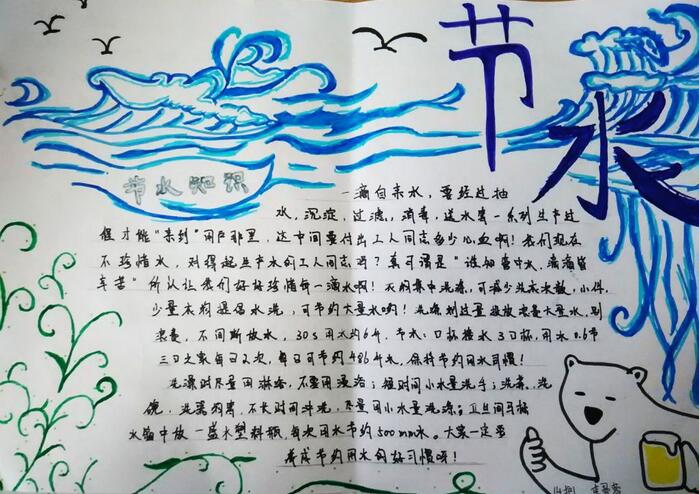 节水
节水知识
一滴自来水，要经过抽
水，沉淀，过滤，消毒，送水等一系列生产过
程才能“来到”用户那里，这中间要付出工人同志多少心血啊！我们现在
不珍惜水，对得起生产水的工人同志吗？真可谓是“谁知壶中水，滴滴皆
辛苦”所以让我们好好珍惜每一滴水啊！衣物集中洗涤，可减少洗衣次数，小件，
少量衣物提倡手洗，可节约大量水哟！洗涤剂过量投放浪费大量水，别
浪费，不间断放水，30s用水约6升，节水：口杯接水3口杯，用水0.6升
三口之家每日2次，每月可节约486升水，保持节约用水习惯！
洗澡时尽量用淋浴，不要用浸浴；短时间小水量洗手；洗菜，洗
碗，洗蔬，不长时间冲洗，尽量用小水量洗涤；卫生间马桶
水箱中放一盛水塑料瓶，每次用水节约500mm水。大家一定要
养成节约用水的好习惯呀！